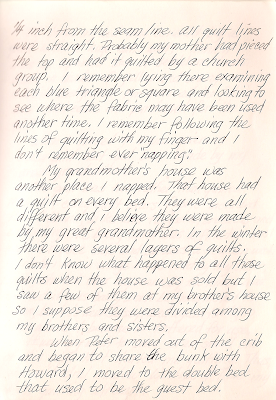 1/4 inch from the seam line. All quilt lines
were straight. Probably my mother had pieced
the top and had it quilted by a church
group. I remember lying there examining
each blue triangle or square and looking to
see where the fabric may have been used
another time. I remember following the
lines of quilting with my finger and I
don't remember ever "napping."
My grandmother's house was
another place I napped. That house had
a quilt on every bed. They were all
different and I believe they were made
by my great grandmother. In the winter
there were several layers of quilts.
I don't know what happened to all those
quilts when the house was sold but I
saw a few of them at my brother's house
so I suppose they were divided among
my brothers and sisters.
When Peter moved out of the crib
and began to share the bunk with
Howard, I moved to the double bed
that used to be the guest bed.